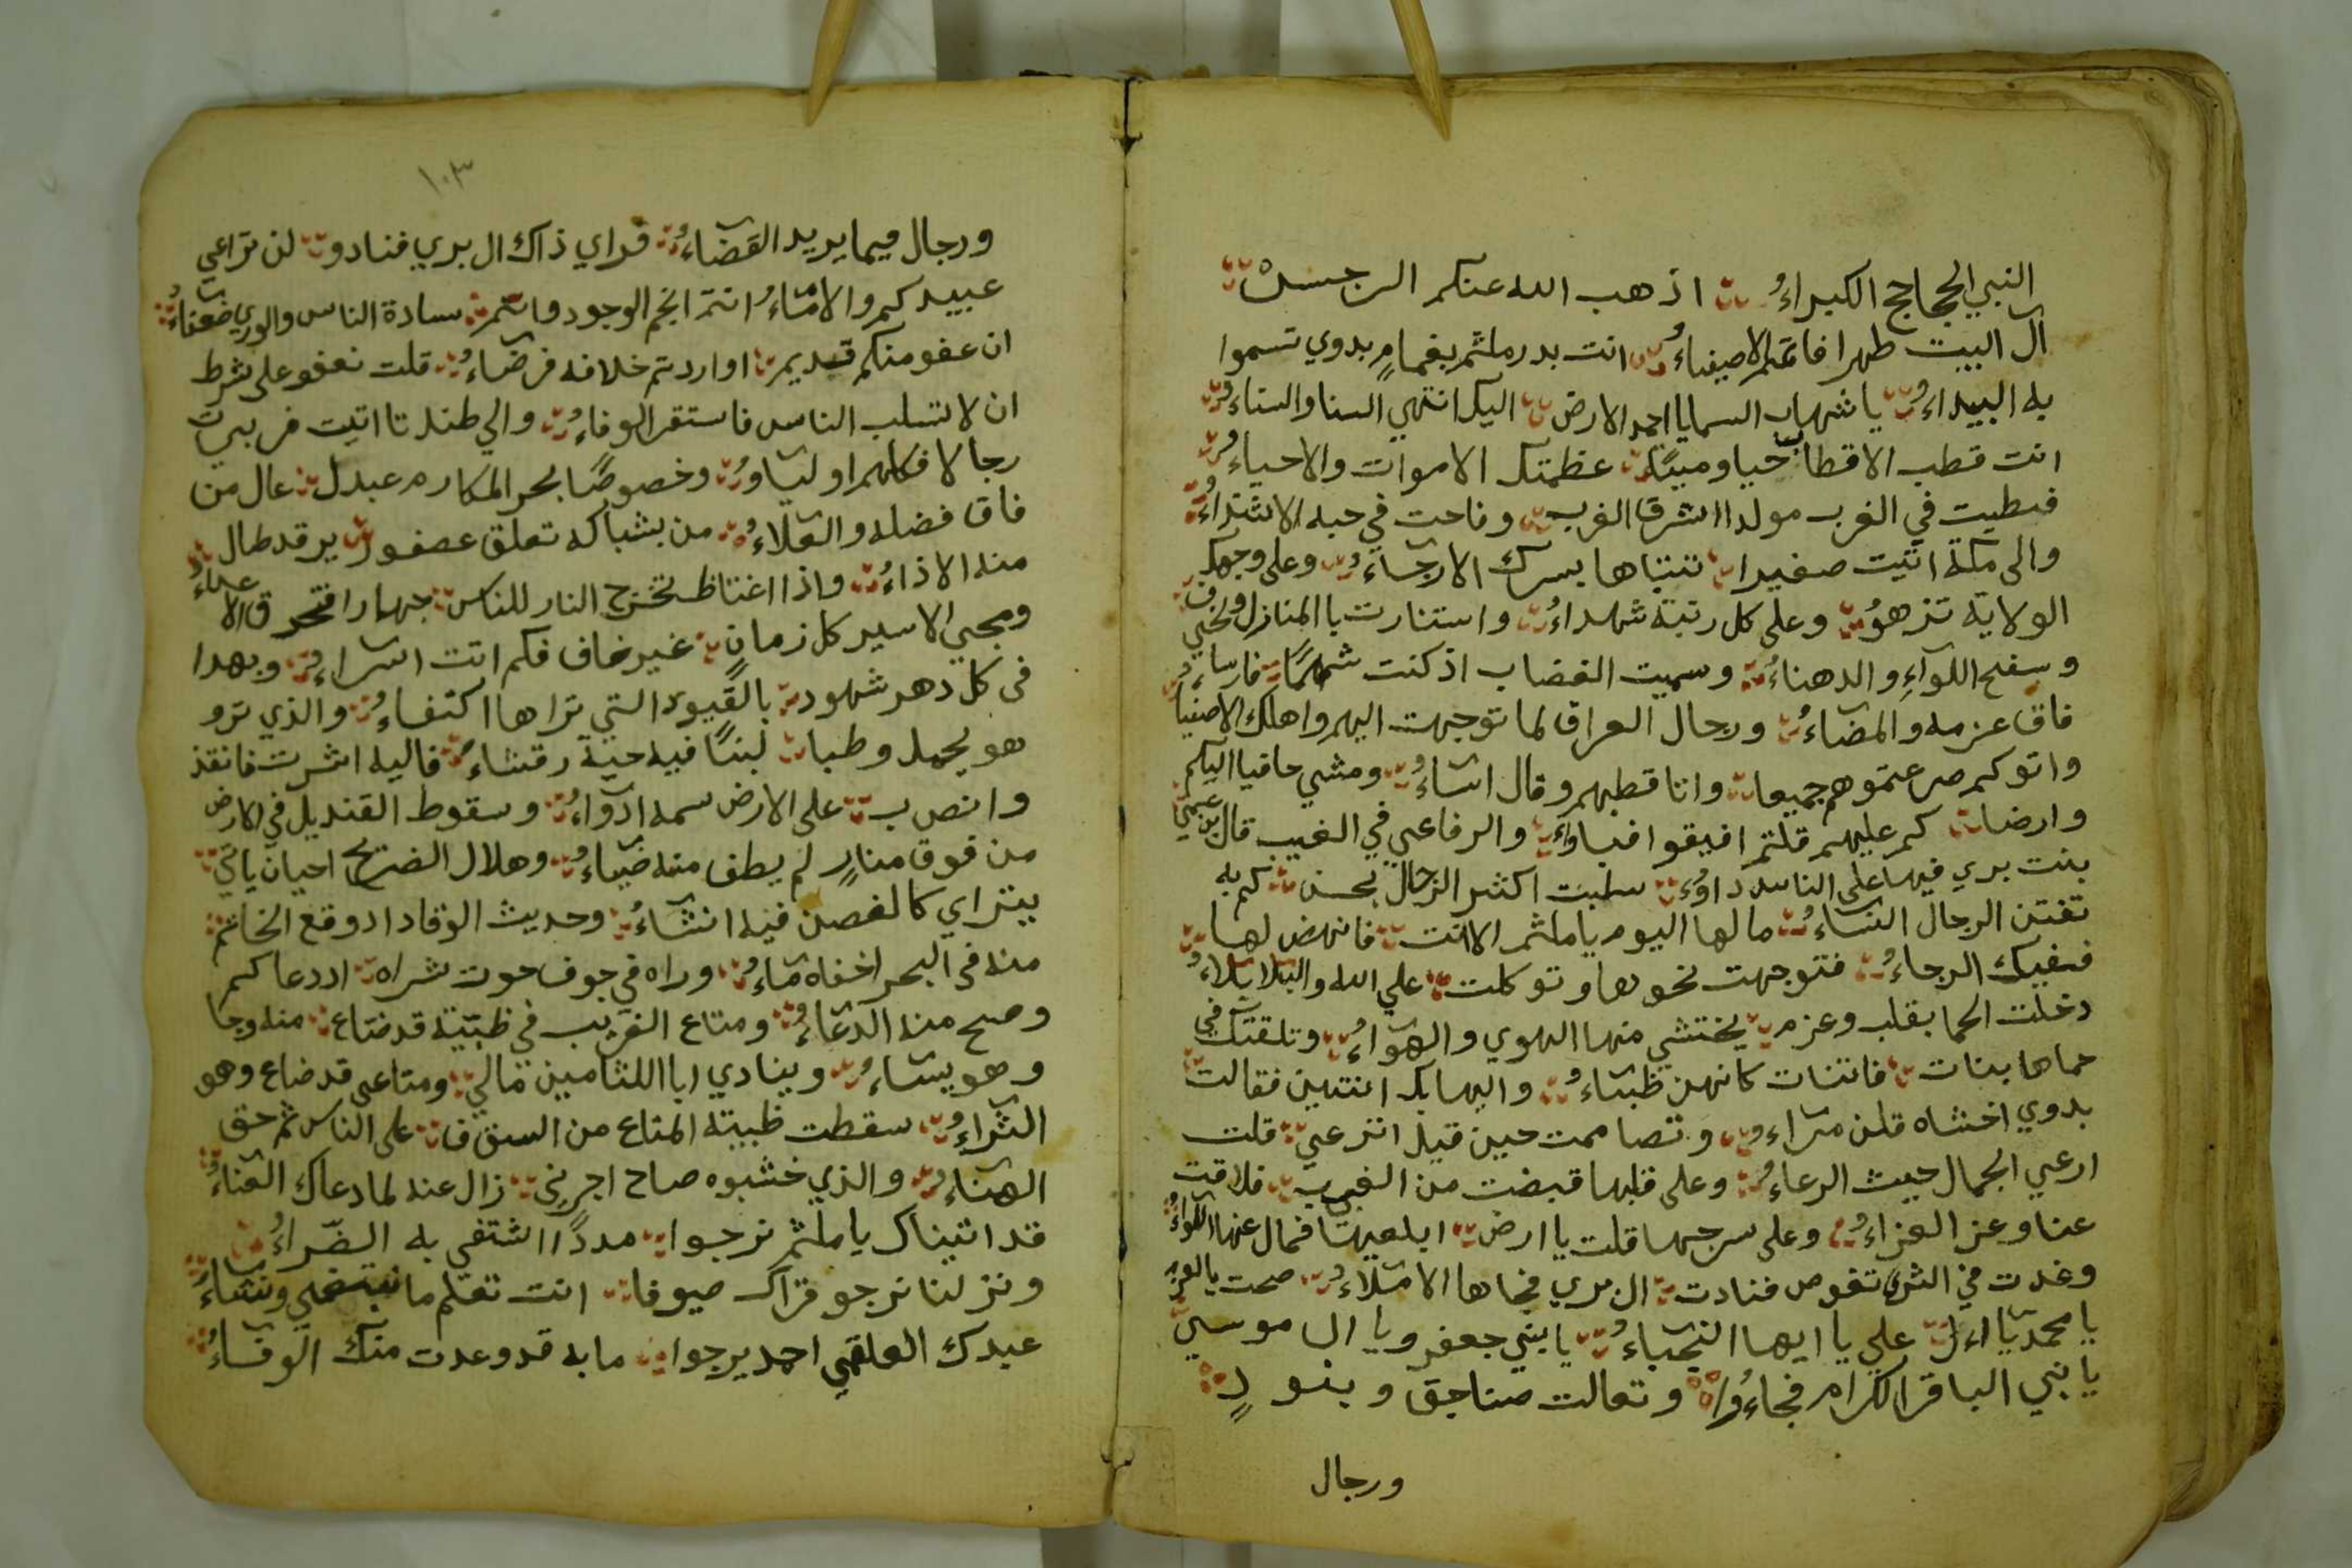 النبي الجحاجح الكبراءُ اذهب الله عنكم الرجس
آل البيت طهرا فانتم الاصفياءُ انت بدر ملثم بغمامٍ بدوي تسموا
به البيداءُ يا شهاب السما يا احمد الارض اليك انتهى السنا والسناءُ
انت قطب الاقطاب حيا وميتا عظمتك الاموات والاحياءُ
فسطيت في الغرب مولد الشرق الغرب وناحت في حبه
والى مكة اتيت صغيرا تتباها بسرك الارجاءُ وعلى وجهك
الولاية تزهوُ وعلى كل رتبة شهداءُ واستنارت بالمنازل
وسفح اللوآءِ والدهناءُ وسميت الغضاب اذ كنت شهمًا فارسا
فاق عزمه والمضاءُ ورجال العراق لما توجهت اليهم واهلك الاصفياءُ
واتوكم صرعتموهم جميعا وانا قطبهم وقال اساءُ ومشي حافيا اليكم
وارضا كم عليهم قلتم افيقوا فباواءُ والرفاعي في الغيب قال
بنت بري فيها على الناس داوُءُ سلبت اكثر الرجال بحسن كم به
تفتن الرجال النساءُ ما لها اليوم يا ملثم الا انت فانهض لها
ففيك الرجاءُ فتوجهت نحوها وتوكلت على الله والبلا بلاءُ
دخلت الحما بقلب وعزم يختشي منها الهوي والهوآءُ وتلقتك في
حماها بنات فاتنات كانهن ظباءُ واليها بك انتهين فقالت
بدوي اخشاه قلن مراءُ وتصاممت حين قيل اترعي قلت
ارعي الجمال حيث الرعاءُ وعلى قلبها قبضت من الغيب فلاقت
عنا وعز العزاءُ وعلى سرجها قلت يا ارض ابلعيها فمال عنها اللواءُ
وغدت في الثرى تغوص فنادت ال بري فجاها الاملاءُ صحت
يا محمد يا ال علي يا ايها النجباءُ يا بني جعفر ويا ال موسى
يا بني الباقر الكرام فجاءُوا وتعالت صناجق وبنودٍ
ورجال
١٠٣
ورجال فيما يريد القضاءُ فراي ذاك ال بري فنادو لن تراعي
عبيدكم والاماءُ انتم انجم الوجود وانتم سادة الناس والورى ضعفاءُ
ان عفو منكم قديم او اردتم خلافه فرضاءُ قلت نعفو على شرط
ان لا تسلب الناس فاستقر الوفاءُ والي طندتا اتيت فربيت
رجالا فكلهم اولياوُ وخصوصًا بحر المكارم عبدل عال من
فاق فضله والعلاءُ من بشباكه تعلق عصفور يرقد طال
منه الاذاءُ واذا اغتاظ تخرج النار للناس جهارا فتحرق الاعداءُ
ومجي الاسير كل زمان غير خاف فكم اتت اسراءُ وبهدا
في كل دهر شهود بالقيود التي تراها اكتفاءُ والذي ترو
هو يحمل وطبا لبنًا فيه حية رقشاءُ فاليه اشرت فانقذ
وانصب على الارض سمه ادواءُ وسقوط القنديل في الارض
من فوق منارٍ لم يطف منه ضياءُ وهلال الضريح احيان ياتي
يتراي كالغصن فيه انشاءُ وحديث الوقاد اد وقع الخاتم
منه في البحر اخفاه ماءُ وراه في جوف حوت شراه اد دعاكم
وصح منه الدعاءُ ومتاع الغريب في ظبية قد ضاع منه وجا
وهو يساءُ وينادي ابا اللثامين مالي ومتاعى قد ضاع وهو
الثراءُ سقطت ظبية المتاع من السقف على الناس ثم حق
الهناءُ والذي خشبوه صاح اجرني زال عنه لما دعاك العناءُ
قد اتيناك يا ملثم نرجوا مددًا اشتفي به الضراءُ
ونزلنا نرجو قراك ضيوفا انت تعلم ما نبتغي ونشاءُ
عبدك العلقمي احمد يرجوا ما به قد وعدت منك الوفاءُ